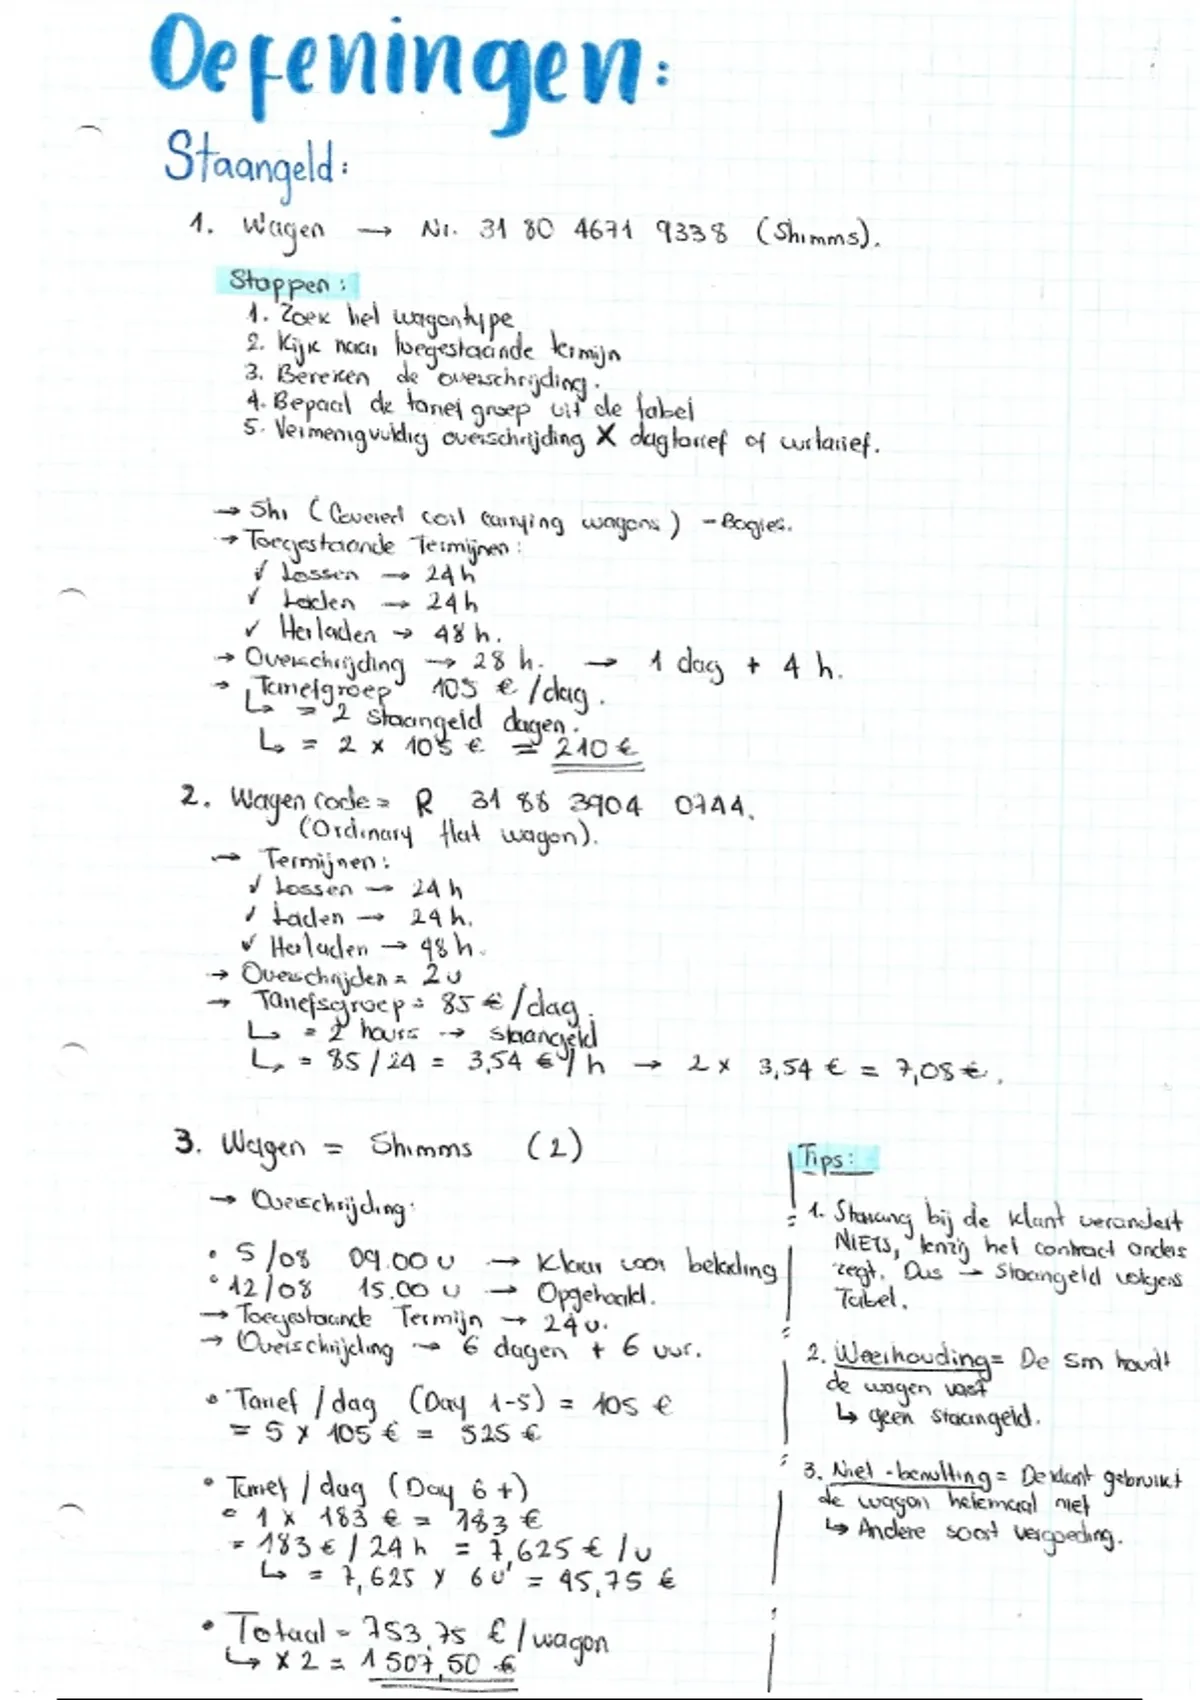 Oefeningen:
Staangeld:
1. Wagen → Nr. 31 80 4671 9338 (Shimms).
Stappen:
1. Zoek het wagentype
2. Kijk naar toegestaande termijn
3. Bereken de overschrijding.
4. Bepaal de tarief groep uit de tabel
5. Vermenigvuldig overschrijding X dagtarief of uurtarief.
→ Shi (Covered coil carrying wagons) - Bogies.
→ Toegestaande Termijnen:
✓ Lossen → 24h
✓ Laden → 24h
✓ Herladen → 48h.
→ Overschrijding → 28 h. → 1 dag + 4 h.
→ Tariefgroep 105 €/dag.
↳ = 2 staangeld dagen.
↳ = 2 x 105 € = 210 €
2. Wagen code = R 31 88 3904 0744.
(Ordinary flat wagon).
→ Termijnen:
✓ Lossen → 24h
✓ Laden → 24h.
✓ Herladen → 48h.
→ Overschrijden = 2u
→ Tariefsgroep = 85 €/dag.
↳ = 2 hours → staangeld
↳ = 85/24 = 3,54 €/h → 2 x 3,54 € = 7,08 €.
3. Wagen = Shimms (2)
→ Overschrijding:
• 5/08 09.00 u → Klaar voor belading
• 12/08 15.00 u → Opgehaald.
→ Toegestaande Termijn → 24u.
→ Overschrijding → 6 dagen + 6 uur.
• Tarief / dag (Day 1-5) = 105 €
= 5 x 105 € = 525 €
• Tarief / dag (Day 6+)
= 1 x 183 € = 183 €
= 183 € / 24 h = 7,625 € /u
↳ = 7,625 x 6u = 45,75 €
• Totaal = 753,75 € / wagon
↳ x 2 = 1 507,50 €
Tips:
1. Staking bij de klant verandert
NIETS, tenzij het contract anders
zegt. Dus → Staangeld volgens
Tabel.
2. Weerhouding = De sm houdt
de wagen vast
↳ geen staangeld.
3. Niet-benutting = De klant gebruikt
de wagon helemaal niet
↳ Andere soort vergoeding.